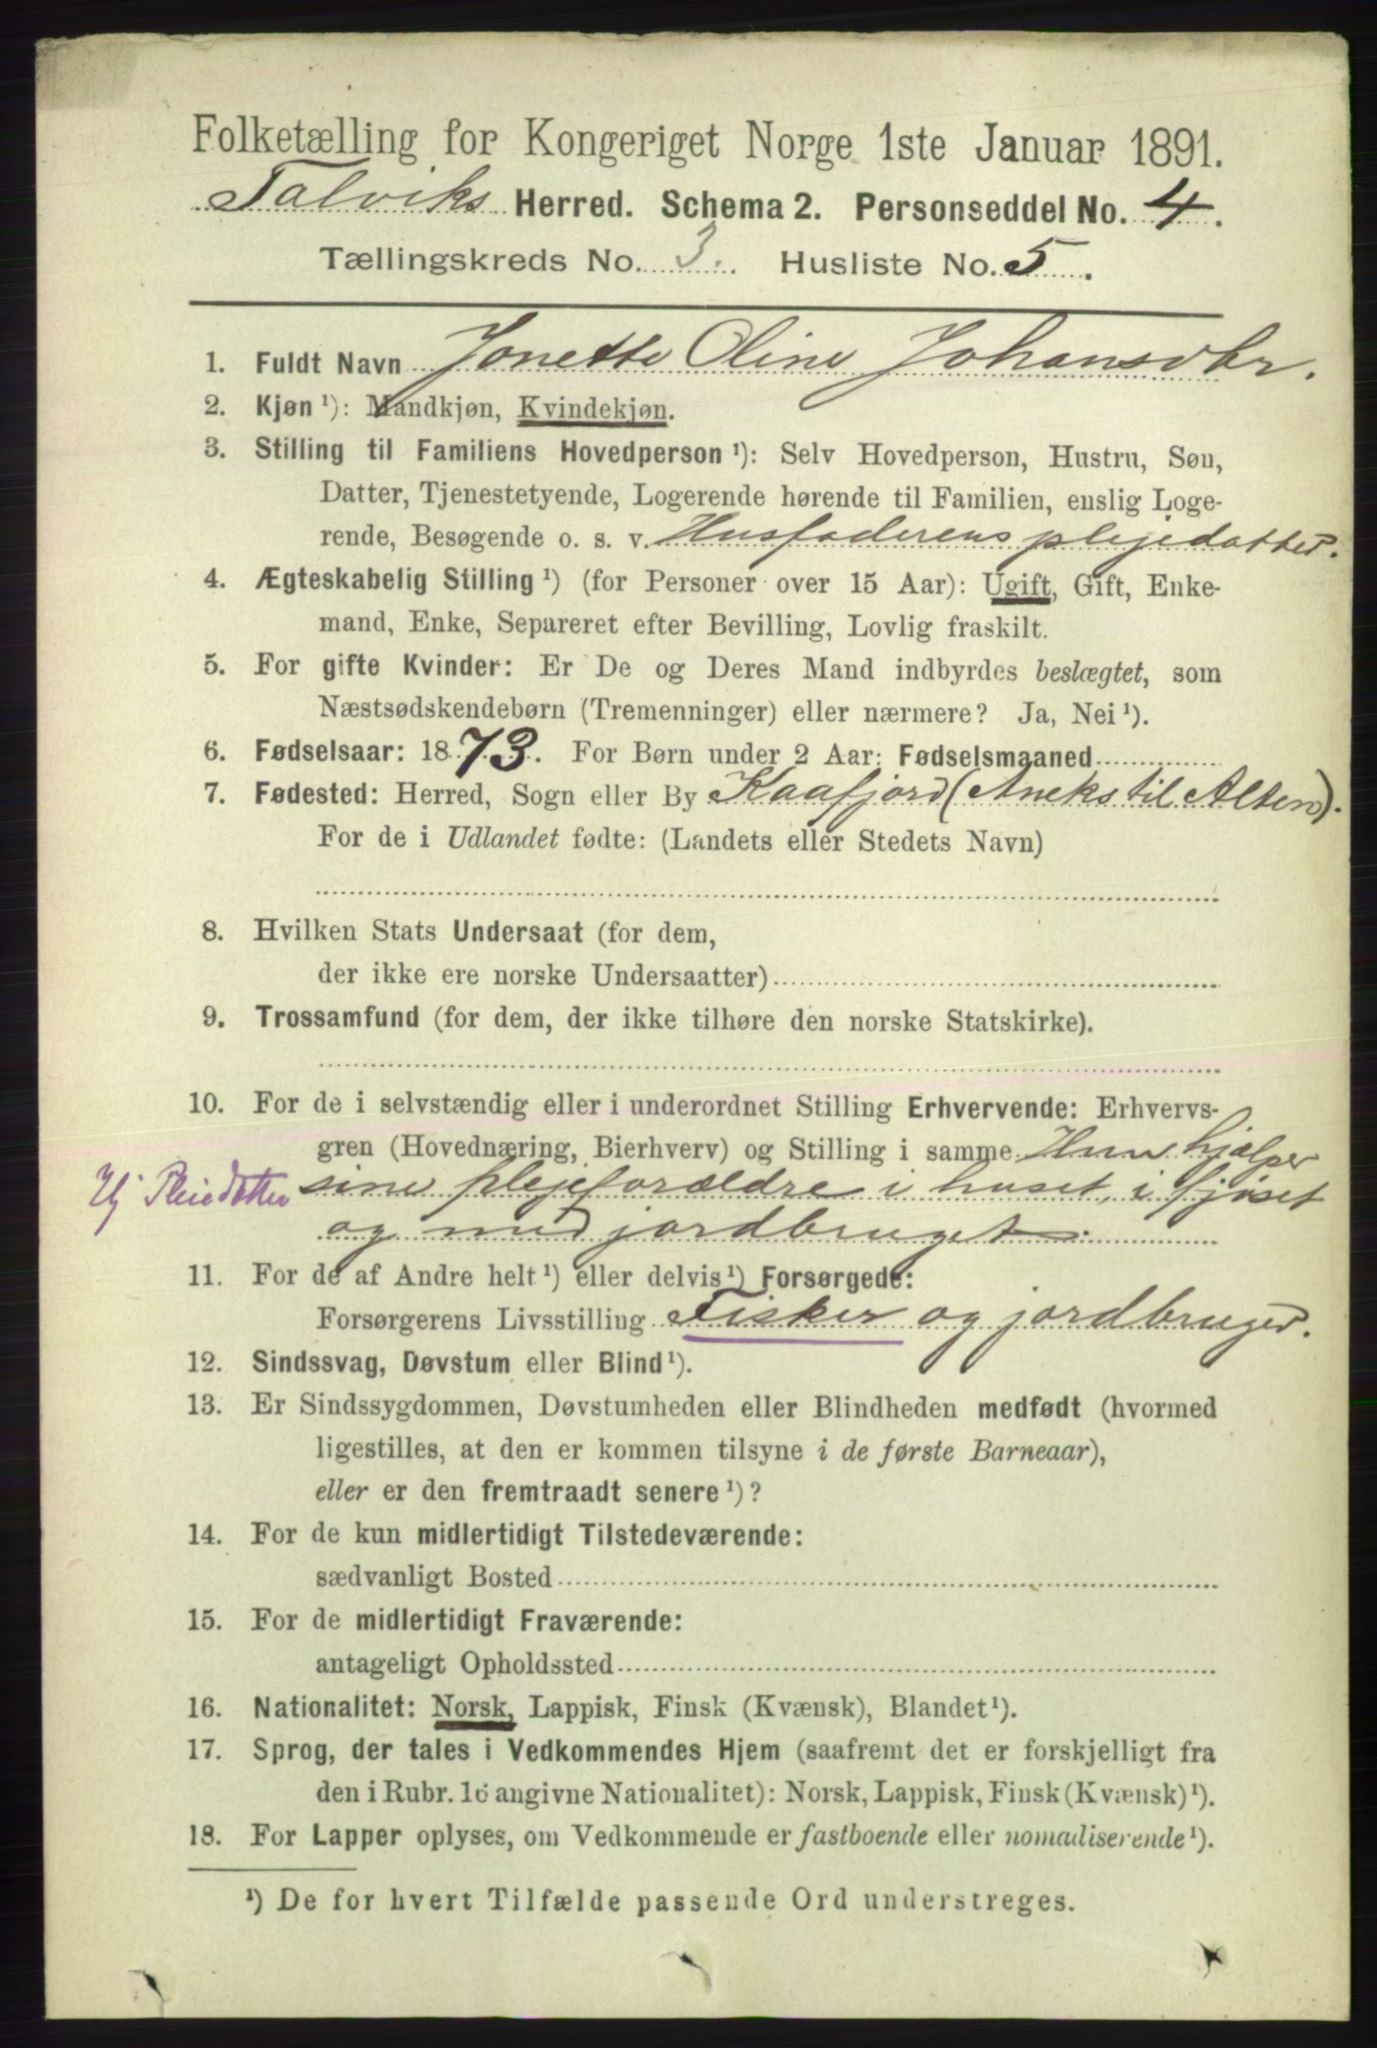 Folketælling for Kongeriget Norge 1ste Januar 1891.
Talviks Herred. Schema 2. Personseddel No. 4.
Tællingskreds No. 3. Husliste No. 5.
1. Fuldt Navn Jonette Oline Johansdtr.
2. Kjøn ¹): Mandkjøn, Kvindekjøn.
3. Stilling til Familiens Hovedperson ¹): Selv Hovedperson, Hustru, Søn,
Datter, Tjenestetyende, Logerende hørende til Familien, enslig Loge-
rende, Besøgende o. s. v. Husfaderens plejedatter.
4. Ægteskabelig Stilling ¹) (for Personer over 15 Aar): Ugift, Gift, Enke-
mand, Enke, Separeret efter Bevilling, Lovlig fraskilt.
5. For gifte Kvinder: Er De og Deres Mand indbyrdes beslægtet, som
Næstsødskendebørn (Tremenninger) eller nærmere? Ja, Nei ¹).
6. Fødselsaar: 1873. For Børn under 2 Aar: Fødselsmaaned
7. Fødested: Herred, Sogn eller By Kaafjord (Aneks til Alten).
For de i Udlandet fødte: (Landets eller Stedets Navn)
8. Hvilken Stats Undersaat (for dem,
der ikke ere norske Undersaatter)
9. Trossamfund (for dem, der ikke tilhøre den norske Statskirke).
10. For de i selvstændig eller i underordnet Stilling Erhvervende: Erhvervs-
gren (Hovednæring, Bierhverv) og Stilling i samme Hun hjælper
Hj Pleiedatter sine plejeforældre i huset, i fjøset
og med jordbruget.
11. For de af Andre helt ¹) eller delvis ¹) Forsørgede:
Forsørgerens Livsstilling Fisker og jordbruger.
12. Sindssvag, Døvstum eller Blind ¹).
13. Er Sindssygdommen, Døvstumheden eller Blindheden medfødt (hvormed
ligestilles, at den er kommen tilsyne i de første Barneaar),
eller er den fremtraadt senere ¹)?
14. For de kun midlertidigt Tilstedeværende:
sædvanligt Bosted
15. For de midlertidigt Fraværende:
antageligt Opholdssted
16. Nationalitet: Norsk, Lappisk, Finsk (Kvænsk), Blandet ¹).
17. Sprog, der tales i Vedkommendes Hjem (saafremt det er forskjelligt fra
den i Rubr. 16 angivne Nationalitet): Norsk, Lappisk, Finsk (Kvænsk) ¹).
18. For Lapper oplyses, om Vedkommende er fastboende eller nomadiserende ¹).
¹) De for hvert Tilfælde passende Ord understreges.